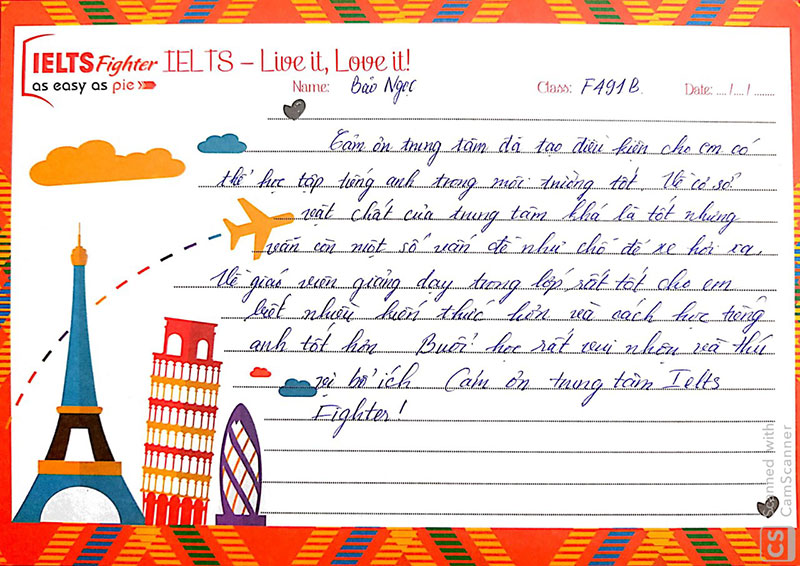 IELTS Fighter IELTS – Live it, Love it!
as easy as pie
Name: Bảo Ngọc Class: F491B Date: .../.../......
Cảm ơn trung tâm đã tạo điều kiện cho em có
thể học tập tiếng anh trong môi trường tốt. Về cơ sở
vật chất của trung tâm khá là tốt nhưng
vẫn còn một số vấn đề như chỗ để xe hơi xa.
Về giáo viên giảng dạy trong lớp rất tốt cho em
biết nhiều kiến thức hơn và cách học tiếng
anh tốt hơn Buổi học rất vui nhộn và thú
vị bổ ích Cảm ơn trung tâm Ielts
Fighter!
Scanned with
CamScanner
CS